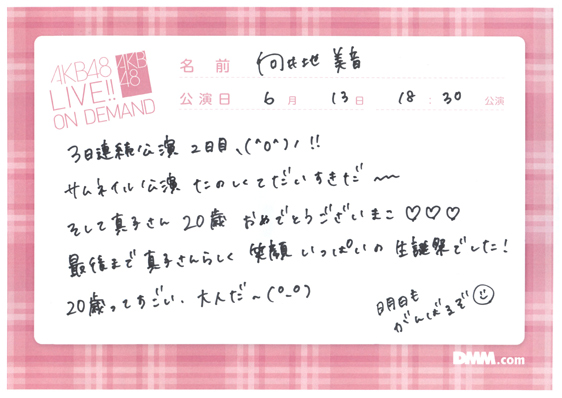 AKB48
LIVE!!
ON DEMAND
AKB
48
名前 向井地 美音
公演日 6月 13日 18:30 公演
3日連続公演 2日目、(^o^)ノ!!
サムネイル公演 たのしくてだいすきだ〜〜
そして真子さん 20歳 おめでとうございまこ♡♡♡
最後まで真子さんらしく 笑顔 いっぱいの 生誕祭でした!
20歳ってすごい、大人だ〜(o_o)
明日も
がんばるぞ☺
DMM.com